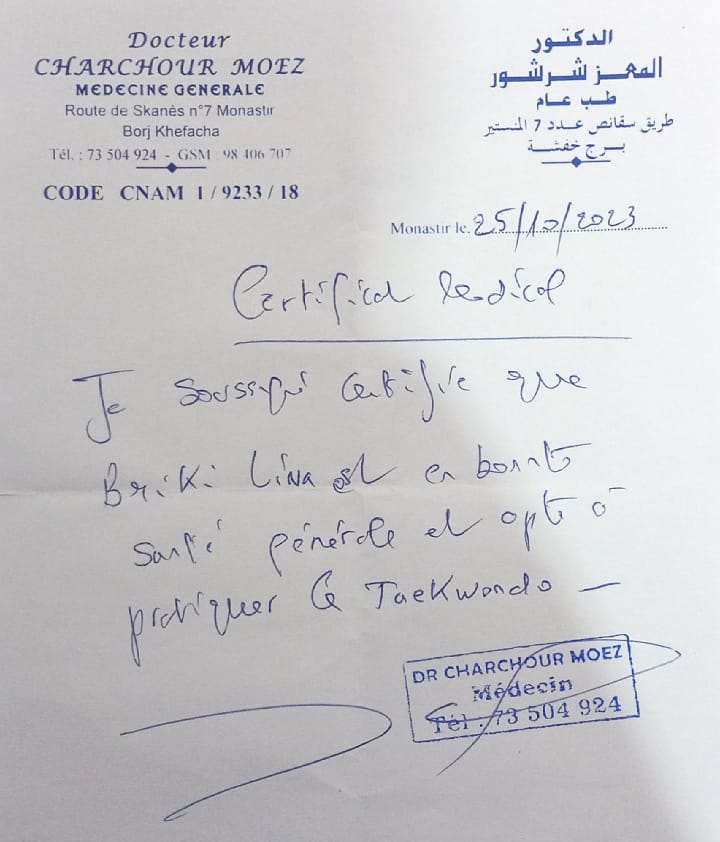 Docteur
CHARCHOUR MOEZ
MEDECINE GENERALE
Route de Skanès n°7 Monastir
Borj Khefacha
Tél. : 73 504 924 - GSM : 98 406 707
CODE CNAM 1 / 9233 / 18
الدكتور
المعز شرشور
طب عام
طريق سقانص عدد 7 المنستير
برج خفشة
Monastir le. 25/10/2023
Certificat Medical
Je soussigné certifie que
Briki Lina est en bonne
santé générale et apte à
pratiquer le Taekwondo —
DR CHARCHOUR MOEZ
Médecin
Tél : 73 504 924